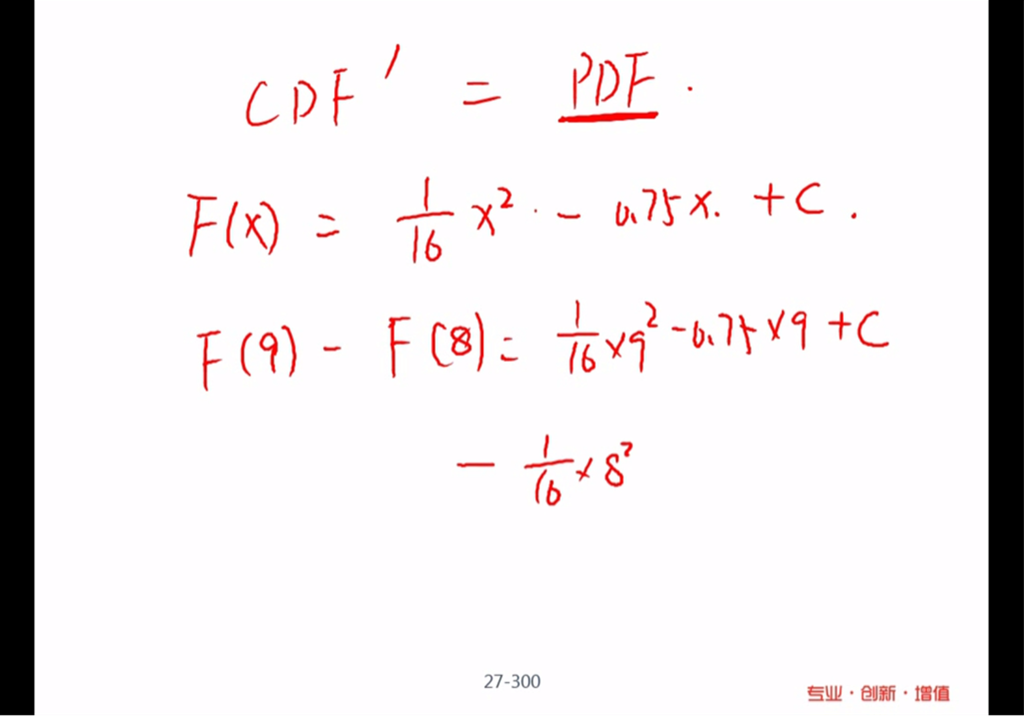 CDF' = PDF.
F(x) = 1/16 x² - 0.75x. + C.
F(9) - F(8) = 1/16 × 9² - 0.75 × 9 + C
- 1/16 × 8²
27-300
专业·创新·增值